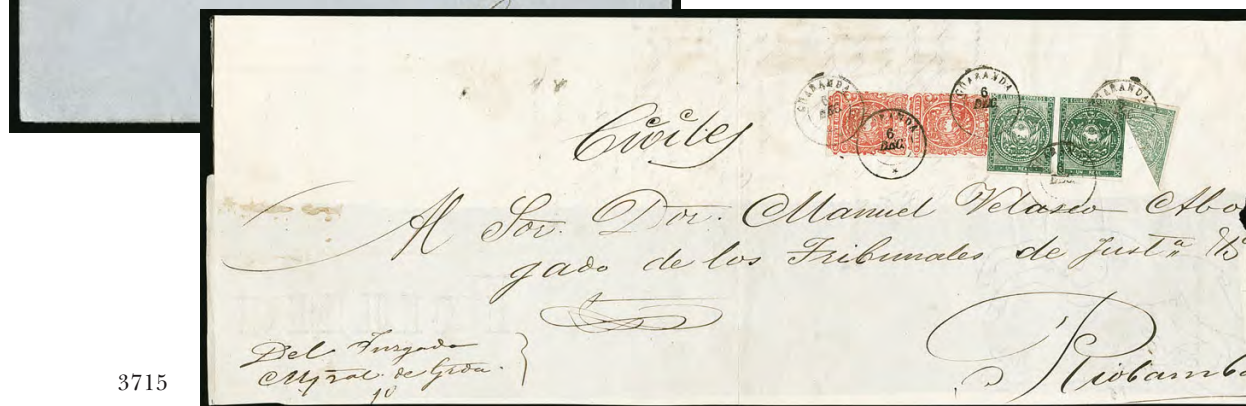 GUARANDA
6
DEC
GUARANDA
6
DEC
RANDA
6
DEC
Civiles
Al Sor. Dor. Manuel Velasco Abo
gado de los Tribunales de Justª
Riobamba
Del Juzgado
de Grda.
3715